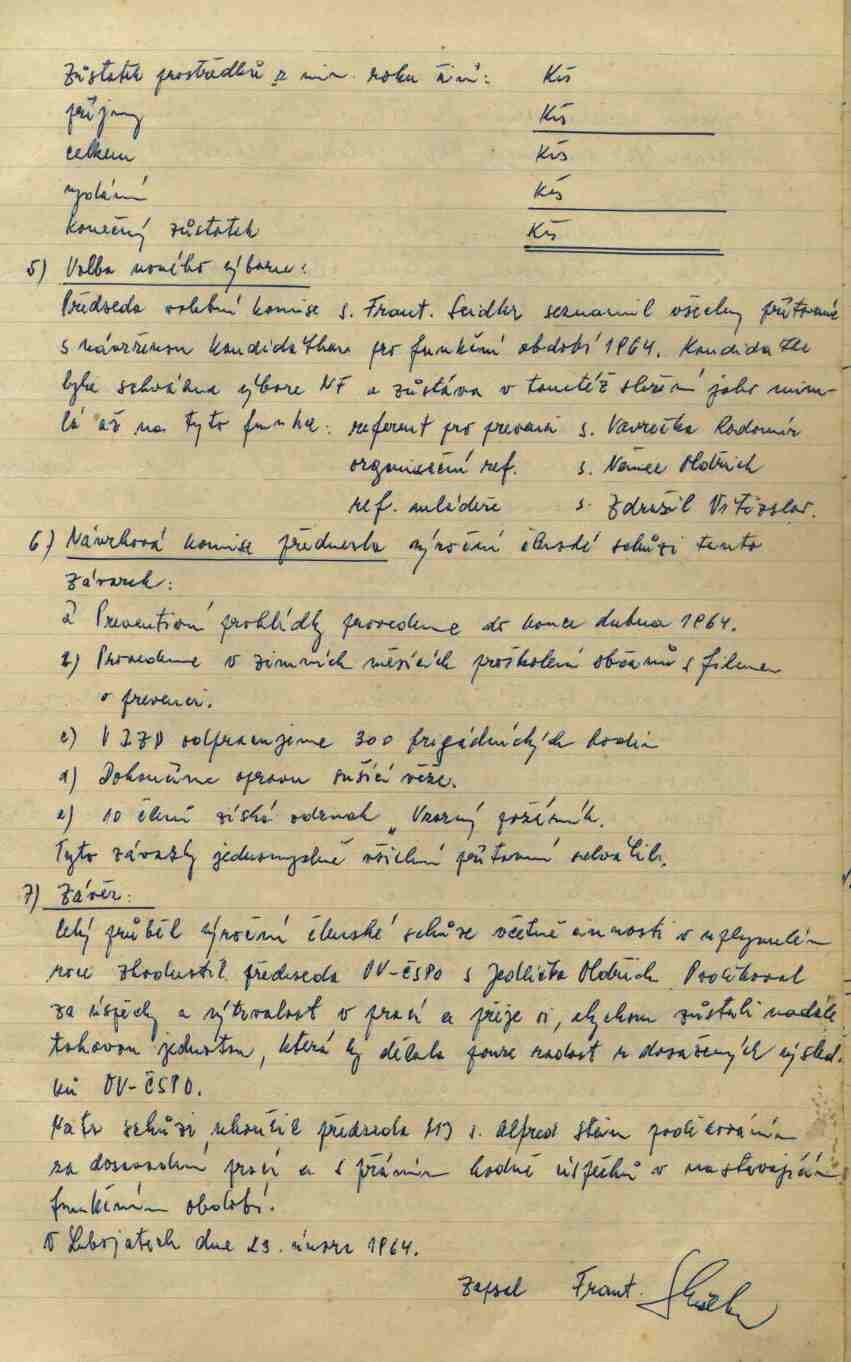 Zůstatek prostředků z min. roku činí: Kčs
příjmy Kčs
celkem Kčs
vydání Kčs
konečný zůstatek Kčs
5) Volba nového výboru:
Předseda volební komise s. Frant. Seidler seznámil všechny přítomné
s návrženou kandidátkou pro funkční období 1964. Kandidátka
byla schválena výborem NF a zůstává v tomtéž složení jako minu-
lá až na tyto funkce: referent pro prevenci s. Vavrečka Radomír
organisační ref. s. Němec Oldřich
ref. mládeže s. Zdražil Vítězslav.
6) Návrhová komise přednesla výroční členské schůzi tento
závazek:
a Preventivní prohlídky provedeme do konce dubna 1964.
b) Provedeme v zimních měsících proškolení občanů s filmem
o prevenci.
c) V JZD odpracujeme 300 brigádnických hodin
d) Dokončíme opravu sušící věže.
e) 10 členů získá odznak „Vzorný požárník.
Tyto závazky jednomyslně všichni přítomní schválili.
7) Závěr:
Celý průběh výroční členské schůze včetně činnosti v uplynulém
roce zhodnotil předseda OV-ČSPO s Jedlička Oldřich. Poděkoval
za úspěchy a vytrvalost v práci a přeje si, abychom zůstali nadále
takovou jednotou, která by dělala pouze radost z dosažených výsled-
ků OV-ČSPO.
Na to schůzi ukončil předseda s. Alfred poděkováním
za dosavadní práci a s přáním hodně úspěchů v nastávajícím
funkčním období.
V Lubojatech dne 23. února 1964.
Zapsal Frant.